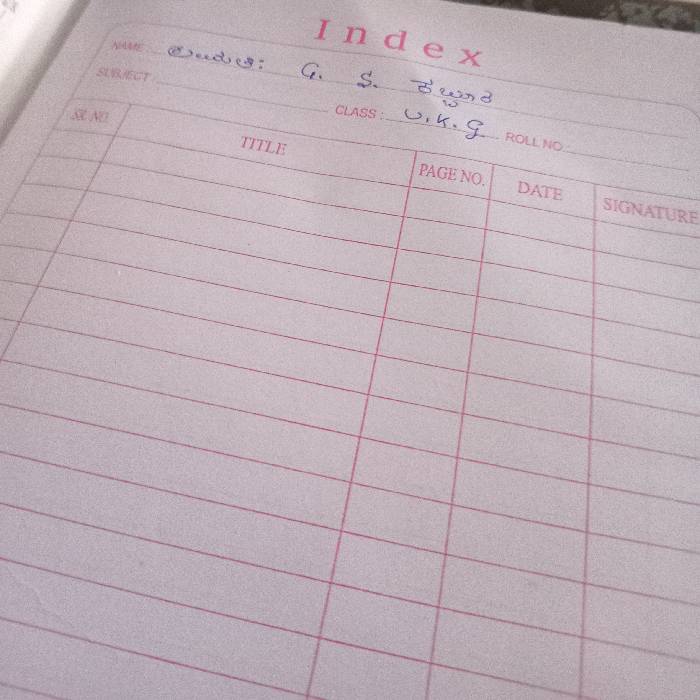 Index
NAME: G. S.
SUBJECT:
CLASS: U.K.G ROLL NO
SR. NO. TITLE PAGE NO. DATE SIGNATURE